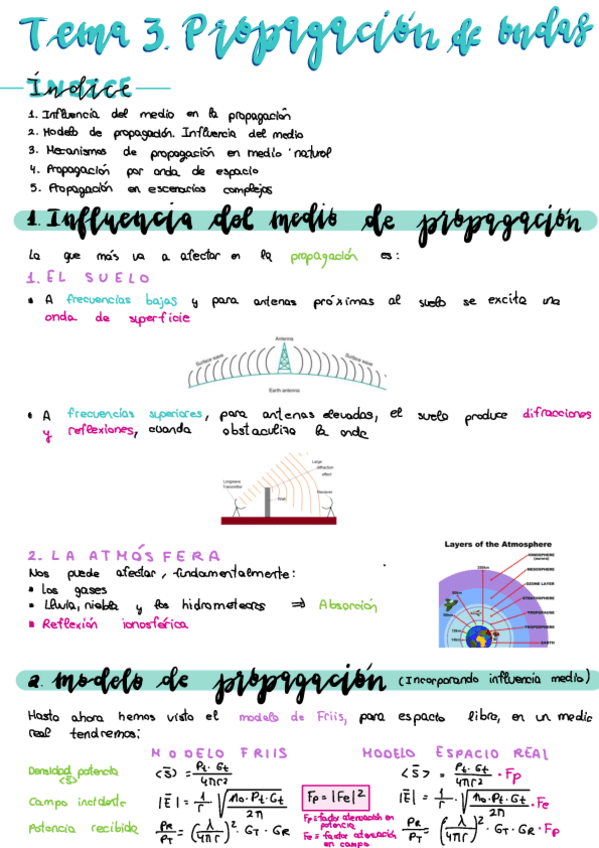 Tema 3. Propagación de ondas
ÍNDICE
1. Influencia del medio en la propagación
2. Modelo de propagación. Influencia del medio
3. Mecanismos de propagación en medio natural
4. Propagación por onda de espacio
5. Propagación en escenarios complejos
1. Influencia del medio de propagación
Lo que más va a afectar en la propagación es:
1. EL SUELO
• A frecuencias bajas y para antenas próximas al suelo se excita una
onda de superficie
Antenna
Surface wave
Surface wave
Earth antenna
• A frecuencias superiores, para antenas elevadas, el suelo produce difracciones
y reflexiones, cuando obstaculiza la onda
Large
diffraction
effect
Longwave
Transmitter
Receiver
2. LA ATMÓSFERA
Nos puede afectar, fundamentalmente:
• Los gases
• Lluvia, niebla y los hidrometeoros ⇒ Absorción
• Reflexión ionosférica
Layers of the Atmosphere
MESOSPHERE
OZONE LAYER
STRATOSPHERE
TROPOPAUSE
TROPOSPHERE
EARTH
2. modelo de propagación (Incorporando influencia medio)
Hasta ahora hemos visto el modelo de Friis, para espacio libre, en un medio
real tendremos:
MODELO FRIIS MODELO ESPACIO REAL
Densidad potencia (S) <S> = Pt·Gt / 4πr² <S> = Pt·Gt / 4πr² · Fp
Campo incidente |E| = 1/r √(η0·Pt·Gt / 2π) Fp = |Fe|² |E| = 1/r · √(η0·Pt·Gt / 2π) · Fe
Fp = factor atenuación en
potencia
Fe = factor atenuación
en campo
Potencia recibida PR/PT = (λ/4πr)² · GT · GR PR/PT = (λ/4πr)² · GT · GR · Fp